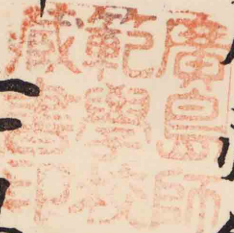 廣島師
範學校
藏書印